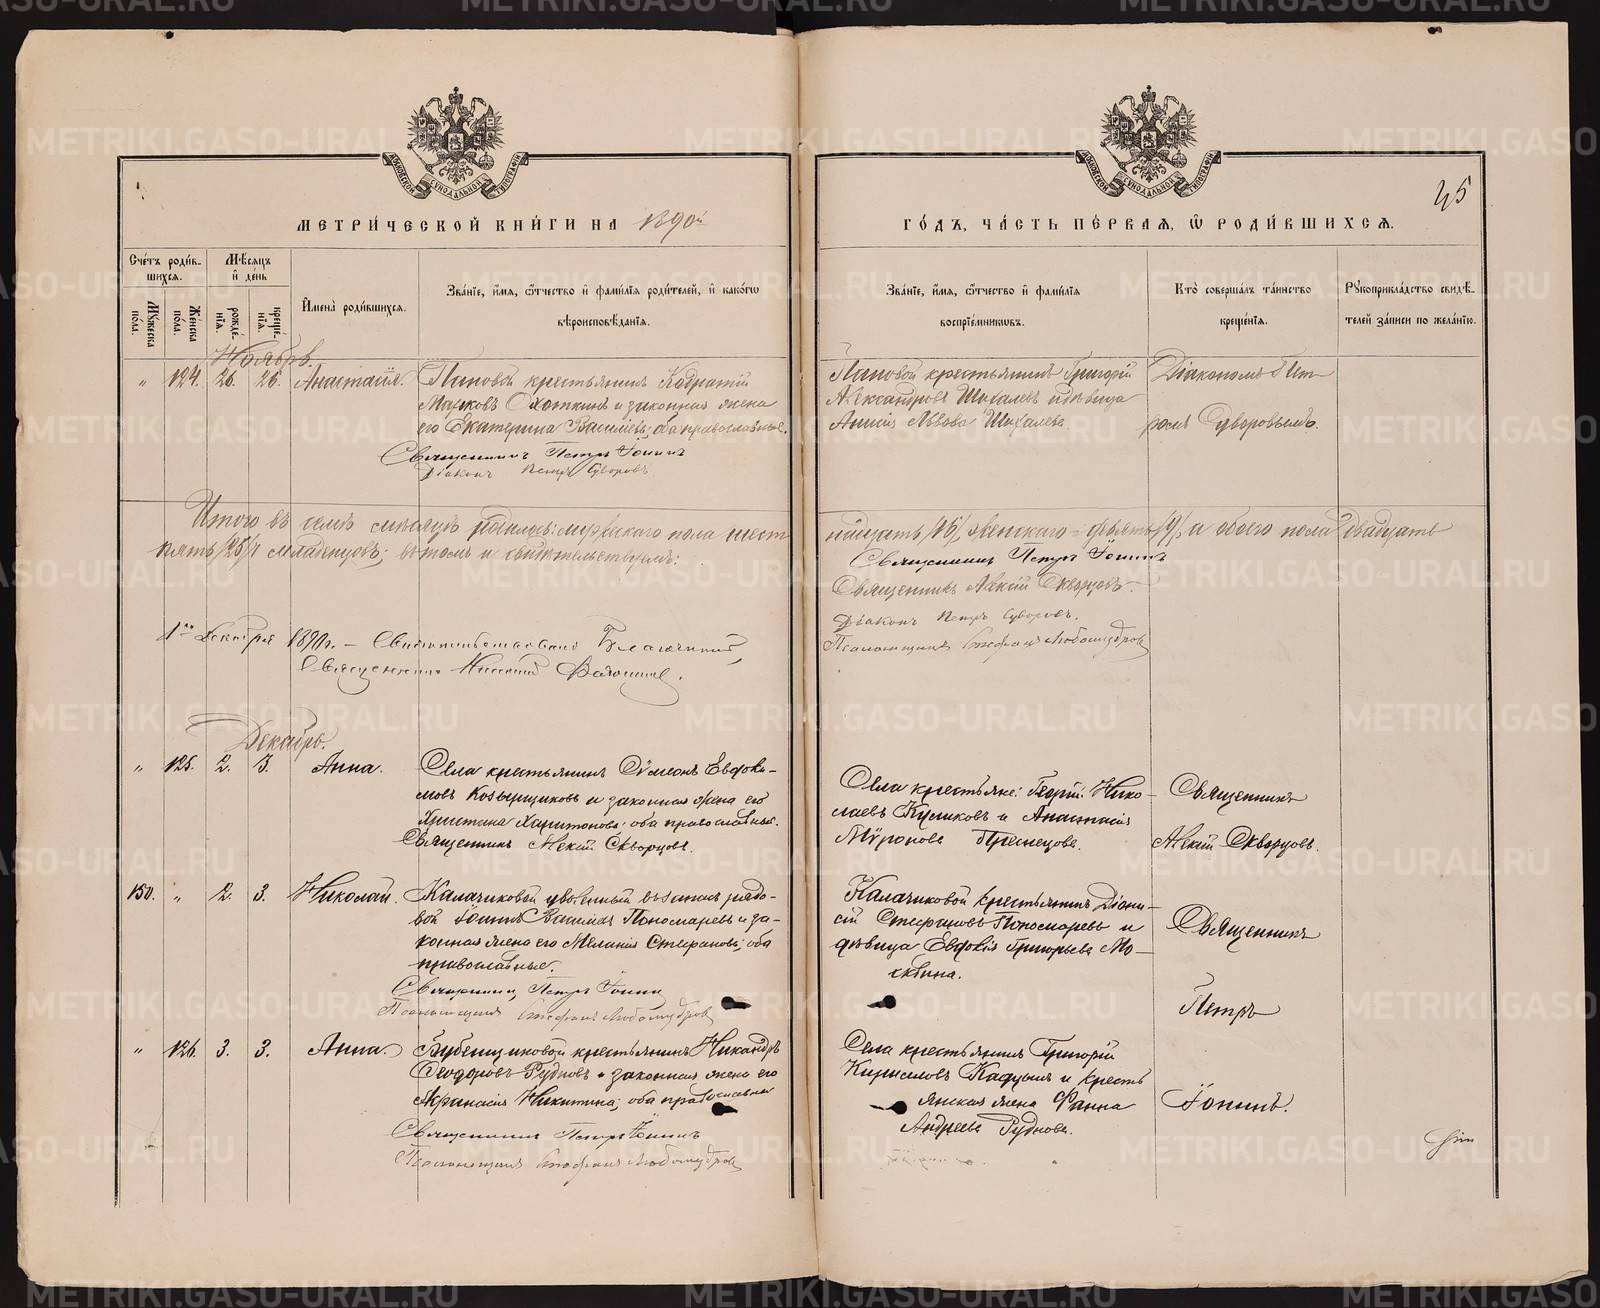 МЕТРИ́ЧЕСКОЙ КНИ́ГИ НА 1890й
ГО́ДЪ, ЧА́СТЬ ПЕ́РВАЯ, Ѽ РОДИ́ВШИХСЯ.
45
Сче́тъ роди́в-
шихся.
Мѣ́сяцъ
и҆ де́нь
Му́жеска
по́ла.
Же́нска
по́ла.
рожде́-
нїя.
креще́-
нїя.
И҆мена̀ роди́вшихся.
Зва́нїе, и҆́мя, ѻ҆́тчество и҆ фами́лїя роди́телей, и҆ како́гѡ
вѣроисповѣ́данїя.
Зва́нїе, и҆́мя, ѻ҆́тчество и҆ фами́лїя
воспрїе́мниковъ.
Кто̀ соверша́лъ та́инство
креще́нїя.
Рꙋкоприкла́дство свидѣ́-
телей за́писи по жела́нїю.
Ноябрь.
" 124. 26. 26. Анастасія.
крестьянинъ Кодратій
Марковъ Охоткинъ и законная жена
его Екатерина Васильева; оба православные.
Священникъ Петръ Іонинъ
Діаконъ Петръ Суворовъ
крестьянинъ Григорій
Александровъ Шихалевъ и дѣвица
Анисія Львова Шихалева
Діакономъ Пет-
ромъ Суворовымъ.
Итого въ семъ мѣсяцѣ родилось: мужескаго пола шест
надцать /16/, женскаго = девять /9/, а обоего пола двадцать
пять /25/ младенцевъ; въ томъ и свидѣтельствуемъ:
Священникъ Петръ Іонинъ
Священникъ Алексій Скворцовъ.
Діаконъ Петръ Суворовъ.
Псаломщикъ Стефанъ Любомудровъ
1го Декабря 1890 г. – Свидѣтельствовалъ Благочинный,
Священникъ
Декабрь.
" 125. 2. 3. Анна.
Села крестьянинъ Сѵмеонъ Евдоки-
мовъ Козырщиковъ и законная жена его
Христина Харитонова; оба православные.
Священникъ Алексій Скворцовъ.
Села крестьяне: Георгій Нико-
лаевъ Куликовъ и Анастасія
Мѵронова Преснецова.
Священникъ
Алексій Скворцовъ.
150. " 2. 3. Николай.
Калачиковой уволенный въ запасъ рядо-
вой Іоаннъ Васильевъ Пономаревъ и за-
конная жена его Меланія Стефанова; оба
православные.
Священникъ Петръ Іонинъ
Псаломщикъ Стефанъ Любомудровъ
Калачиковой крестьянинъ Діони-
сій Стефановъ Пономаревъ и
дѣвица Евдокія Григорьева Мо-
квина.
Священникъ
Петръ
" 126. 3. 3. Анна.
Бубенщиковой крестьянинъ Никандръ
Ѳеодоровъ Рудновъ и законная жена его
Аѳанасія Никитина; оба православные
Священникъ Петръ Іонинъ
Псаломщикъ Стефанъ Любомудровъ
Села крестьянинъ Григорій
Кирилловъ и кресть
янская жена Фанна
Андреева Руднова.
Іонинъ.
METRIKI.GASO-URAL.RU